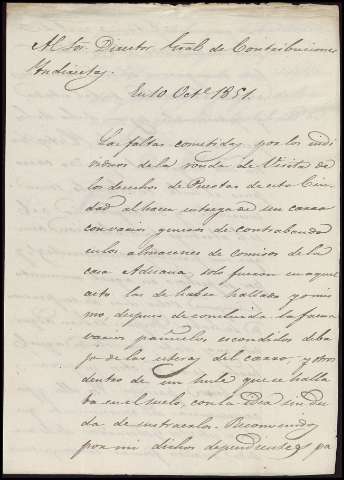 Al Sor. Director Gral de Contribuciones
Yndirectas.
En 10 Octe. 1851.
Las faltas cometidas por los indi
viduos de la ronda de Visita de
los derechos de Puertas de esta Ciu
dad al hacer entrega de un carro
con varios generos de contrabando
en los almacenes de comisos de la
casa Aduana, solo fueron en aquel
acto las de haber hallado yo mis
mo, despues de concluida la faena
varios pañuelos escondidos deba
jo de las esteras del carro, y otros
dentro de un hule que se halla
ba en el suelo, con la idea sin du
da de sustraerlos. Reconvenidos
por mi dichos dependientes pa